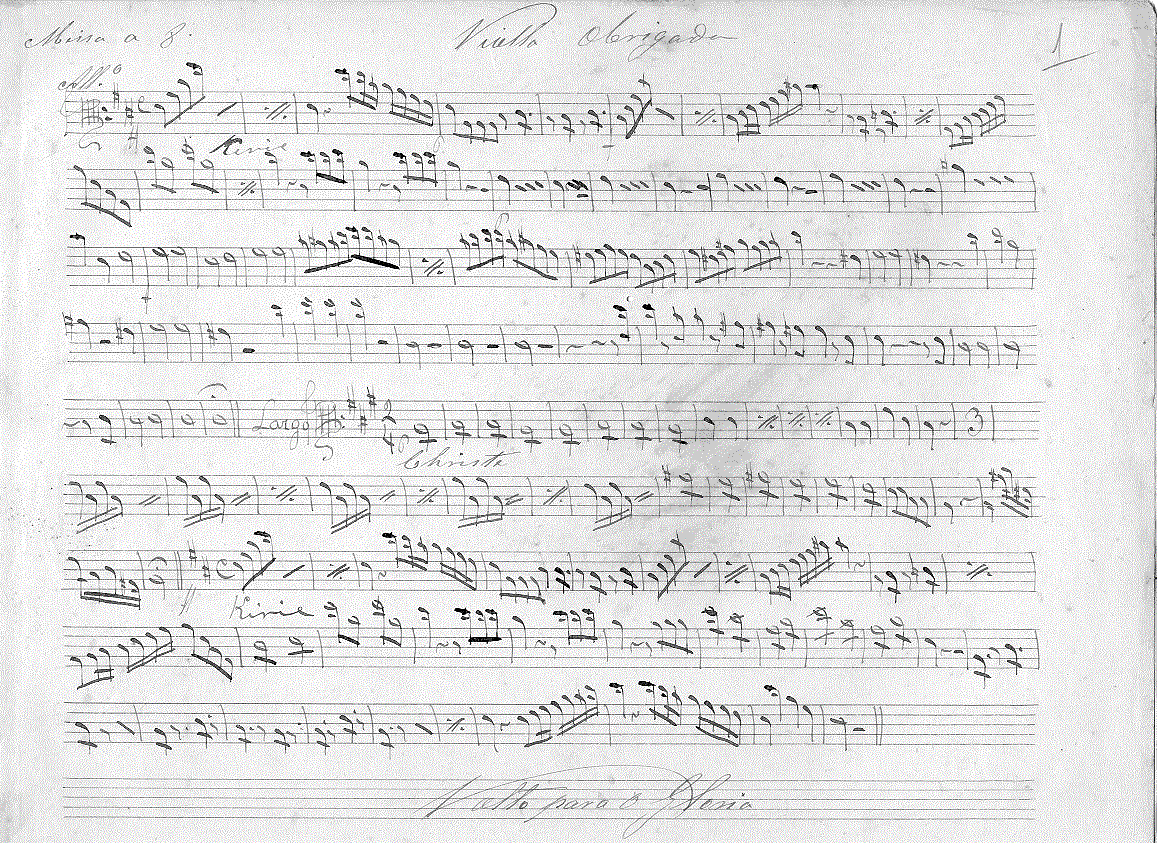 Missa a 8. Violla Obrigada 1
All.º
Kirie
Largo
Christe
Kirie
Volta para o Gloria